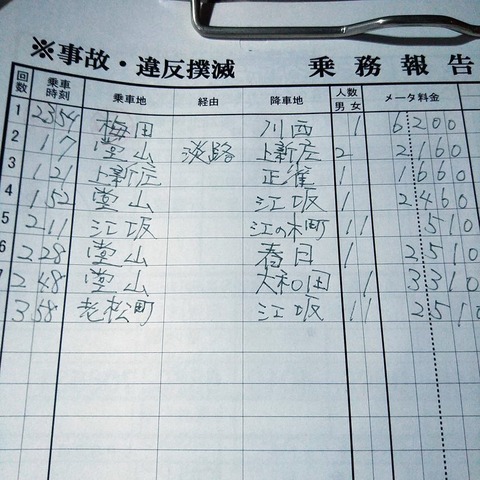 ※事故・違反撲滅 乗務報告
回数 乗車時刻 乗車地 経由 降車地 人数 男 女 メータ料金
1 2354 梅田 川西 1 6200
2 17 堂山 淡路 上新庄 2 2160
3 121 上新庄 正雀 1 1660
4 152 堂山 江坂 1 2460
5 211 江坂 江の木町 1 1 510
6 228 堂山 春日 1 2510
7 248 堂山 大和田 1 3310
358 老松町 江坂 1 1 2510